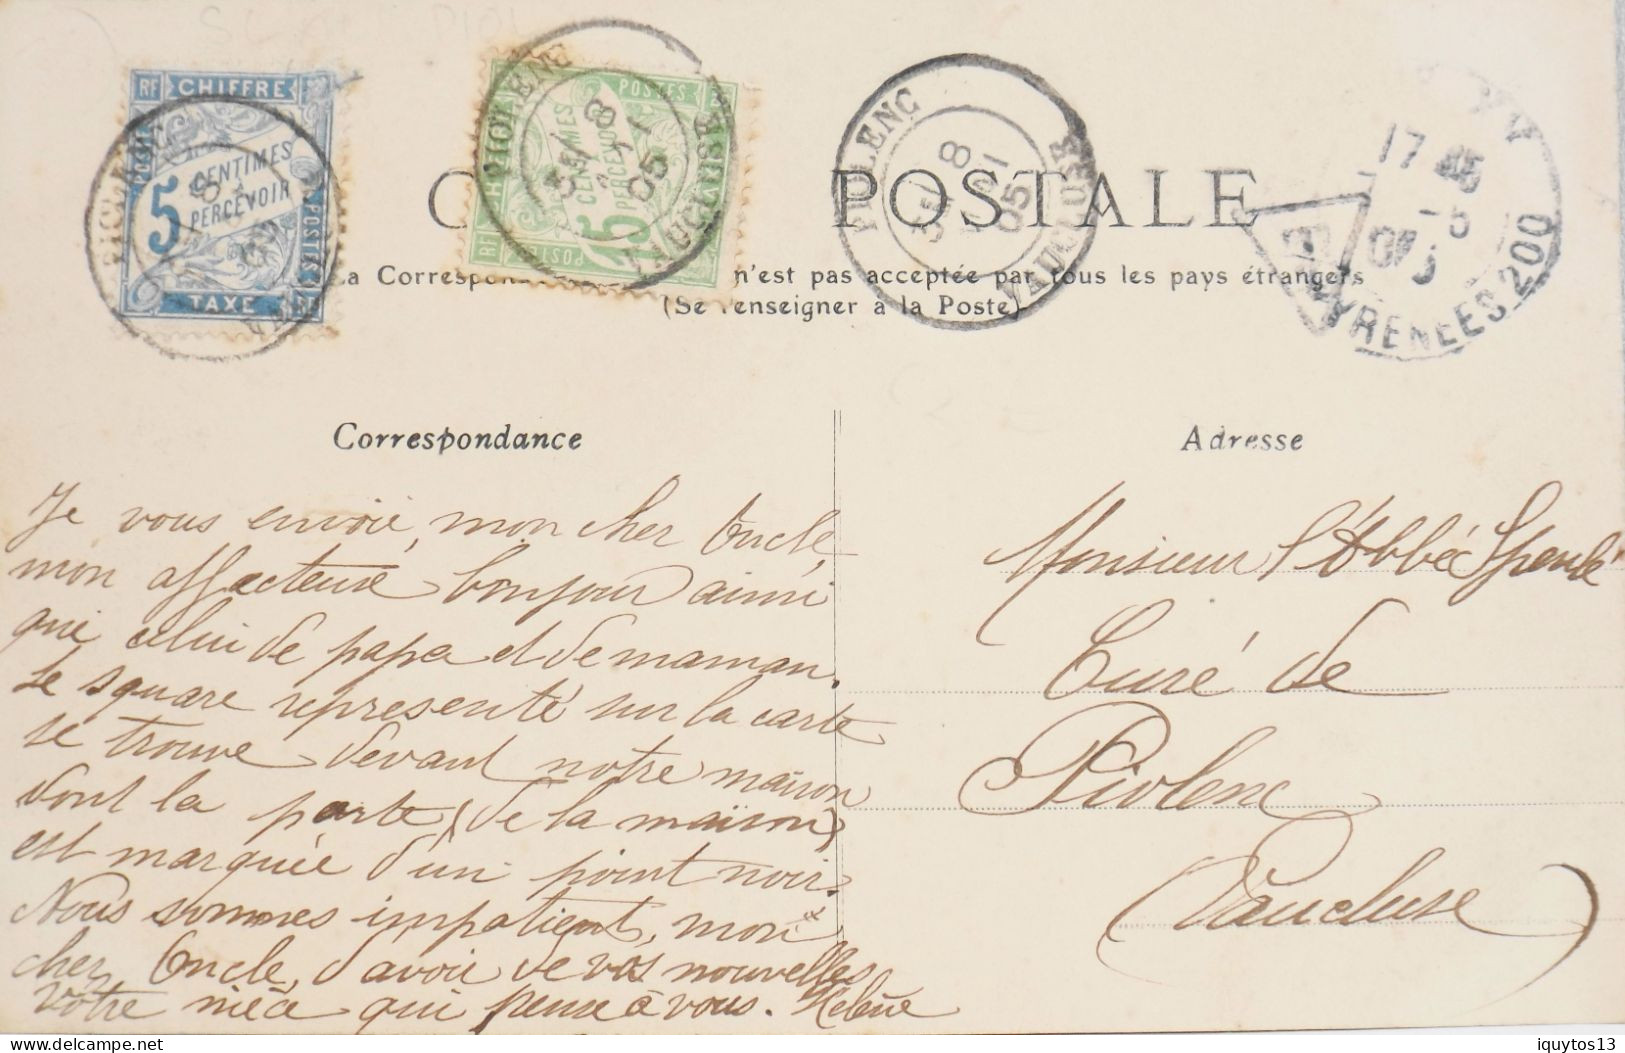 RF CHIFFRE
5 CENTIMES
PERCEVOIR
POSTES
TAXE RF
PIOLENC
8
05
VAUCLUSE
POSTES
15 CENTIMES
PERCEVOIR
RF
POSTES
PIOLENC
8
05
VAUCLUSE
17 45
5
PYRENEES 200
T
C POSTALE
La Correspon n'est pas acceptée par tous les pays étrangers
(Se renseigner à la Poste)
Correspondance
Adresse
Je vous envoie, mon cher Oncle,
mon affecteuse bonjour ainsi
que celui de papa et de maman.
Le square representé sur la carte
se trouve devant notre maison
dont la porte (de la maison)
est marquée d'un point noir.
Nous sommes impatient, mon
cher Oncle, d'avoir de vos nouvelles
Votre nièce qui pense à vous. Helène
Monsieur l'Abbé
Curé de
Piolenc
Vaucluse
delcampe.net
iquytos13